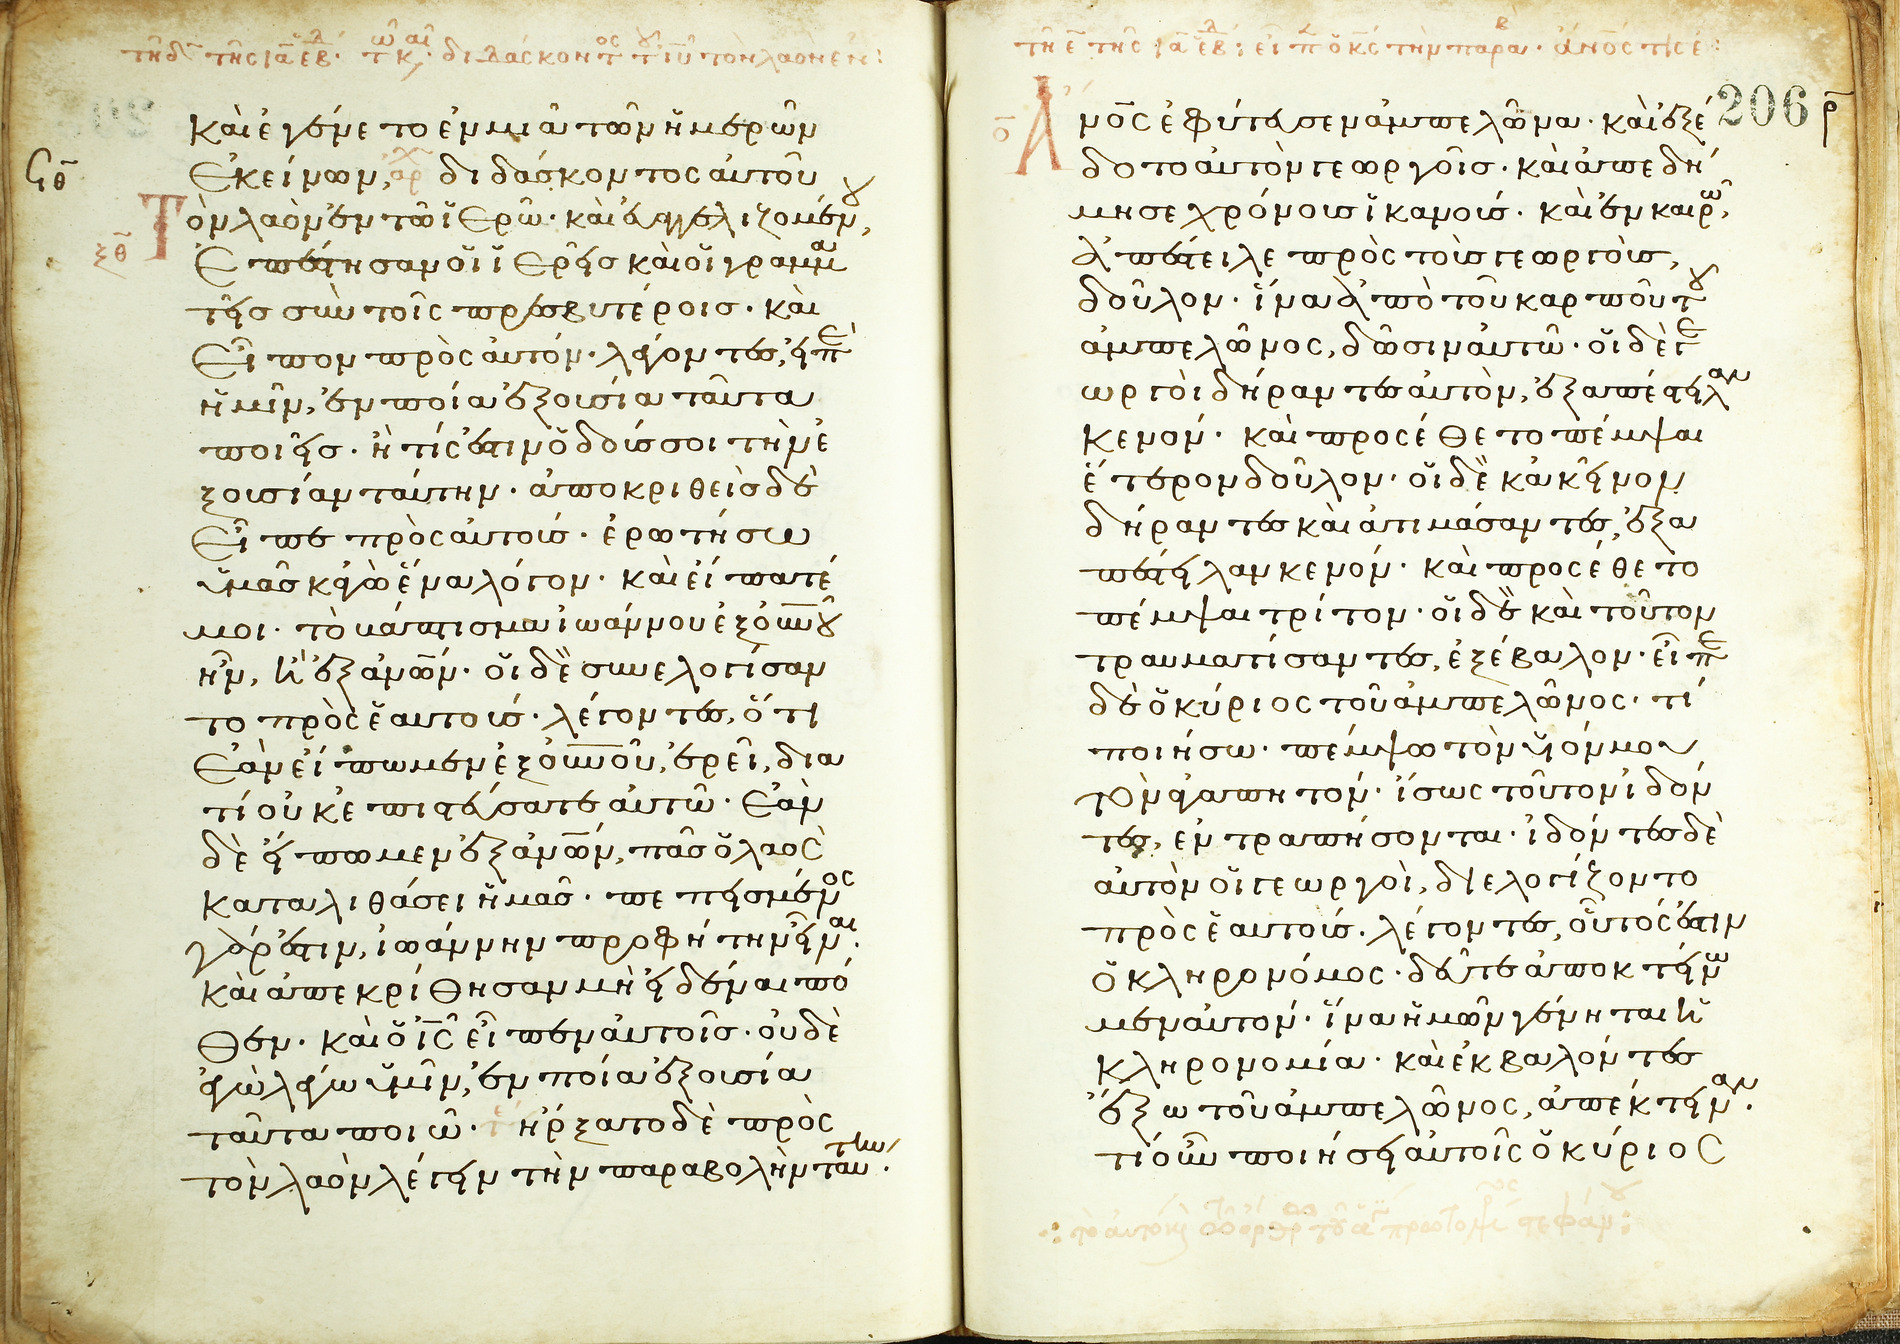 καὶ ἐγένετο ἐν μιᾶ τῶν ἡμερῶν
ἐκείνων, διδάσκοντος αὐτοῦ
τὸν λαὸν ἐν τῶ ἱερῶ· καὶ εὐαγγελιζομένου,
ἐπέστησαν οἱ ἱερεῖς καὶ οἱ γραμμα
τεῖς σὺν τοῖς πρεσβυτέροις· καὶ
εἶπον πρὸς αὐτόν· λέγοντες, εἰπὲ
ἡμῖν, ἐν ποία ἐξουσία ταῦτα
ποιεῖς· ἢ τίς ἐστιν ὁ δούς σοι τὴν ἐ
ξουσίαν ταύτην· ἀποκριθεὶς δὲ
εἶπε πρὸς αὐτούς· ἐρωτήσω
ὑμᾶς κἀγὼ ἕνα λόγον· καὶ εἴπατέ
μοι· τὸ βάπτισμα ἰωάννου ἐξ οὐνοῦ
ἦν, ἢ ἐξ ἀνῶν· οἱ δὲ συνελογίσαν
το πρὸς ἑαυτούς· λέγοντες, ὅτι
ἐὰν εἴπωμεν ἐξ οὐνοῦ, ἐρεῖ, δια
τί οὐκ ἐπιστεύσατε αὐτῶ· ἐὰν
δὲ εἴπωμεν ἐξ ἀνῶν, πᾶς ὁ λαὸς
καταλιθάσει ἡμᾶς· πεπεισμένος
γάρ ἐστιν, ἰωάννην προφήτην εἶναι·
καὶ ἀπεκρίθησαν μὴ εἰδέναι πό
θεν· καὶ ὁ ἰς εἶπεν αὐτοῖς· οὐδὲ
ἐγὼ λέγω ὑμῖν, ἐν ποία ἐξουσία
ταῦτα ποιῶ· ἤρξατο δὲ πρὸς
τὸν λαὸν λέγειν τὴν παραβολὴν ταύτην·
206
Ἄνος ἐφύτευσεν ἀμπελῶνα· καὶ ἐξέ
δοτο αὐτὸν γεωργοῖς· καὶ ἀπεδή
μησε χρόνους ἱκανούς· καὶ ἐν καιρῶ,
ἀπέστειλε πρὸς τοὺς γεωργοὺς,
δοῦλον· ἵνα ἀπὸ τοῦ καρποῦ τοῦ
ἀμπελῶνος, δῶσιν αὐτῶ· οἱ δὲ γε
ωργοὶ δήραντες αὐτὸν, ἐξαπέστειλαν
κενόν· καὶ προσέθετο πέμψαι
ἕτερον δοῦλον· οἱ δὲ κἀκεῖνον
δήραντες καὶ ἀτιμάσαντες, ἐξα
πέστειλαν κενόν· καὶ προσέθετο
πέμψαι τρίτον· οἱ δὲ καὶ τοῦτον
τραυματίσαντες, ἐξέβαλον· εἶπε
δὲ ὁ κύριος τοῦ ἀμπελῶνος· τί
ποιήσω· πέμψω τὸν υἱόν μου
τὸν ἀγαπητόν· ἴσως τοῦτον ἰδόν
τες, ἐντραπήσονται· ἰδόντες δὲ
αὐτὸν οἱ γεωργοὶ, διελογίζοντο
πρὸς ἑαυτούς· λέγοντες, οὗτός ἐστιν
ὁ κληρονόμος· δεῦτε ἀποκτείνω
μεν αὐτόν· ἵνα ἡμῶν γένηται ἡ
κληρονομία· καὶ ἐκβαλόντες
ἔξω τοῦ ἀμπελῶνος, ἀπέκτειναν·
τί οὖν ποιήσει αὐτοῖς ὁ κύριος